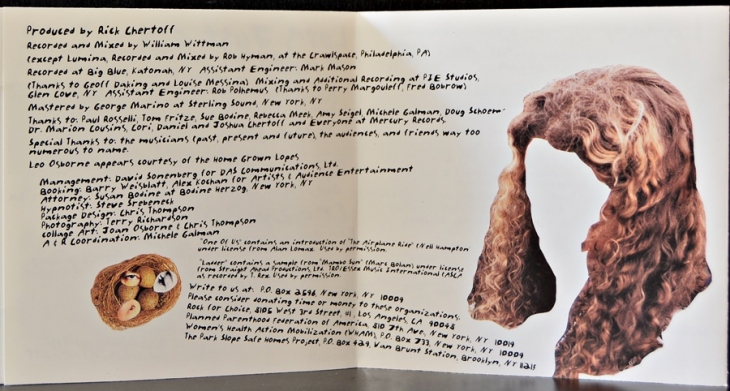 Produced by Rick Chertoff
Recorded and Mixed by William Wittman
(except Lumina, Recorded and Mixed by Rob Hyman, at the Crawlspace, Philadelphia, PA)
Recorded at Big Blue, Katonah, NY Assistant Engineer: Mark Mason
(Thanks to Geoff Daking and Louise Messina) Mixing and Additional Recording at PIE Studios,
Glen Cove, NY Assistant Engineer: Rob Polhemus (Thanks to Perry Margouleff, Fred Bobrow)
Mastered by George Marino at Sterling Sound, New York, NY
Thanks to: Paul Rosselli, Tom Fritze, Sue Bodine, Rebecca Meek, Amy Seigel, Michele Galman, Doug
Dr. Marion Cousins, Cori, Daniel and Joshua Chertoff and Everyone at Mercury Records.
Special Thanks to: the musicians (past, present and future), the audiences, and friends way too
numerous to name.
Leo Osborne appears courtesy of the Home Grown Lopes
Management: David Sonenberg for DAS Communications, Ltd.
Booking: Barry Weisblatt, Alex Kochan for Artists & Audience Entertainment
Attorney: Susan Bodine at Bodine Herzog, New York, NY
Hypnotist: Steve Srebeneck
Package Design: Chris Thompson
Photography: Terry Richardson
Collage Art: Joan Osborne & Chris Thompson
A & R Coordination: Michele Galman
"One Of Us" contains an introduction of "The Airplane Ride" (Nell Hampton
under license from Alan Lomax. Used by permission.
"Ladder" contains a sample from "Mambo Sun" (Marc Bolan) under license
from Straight Ahead Productions, Ltd. TRO/Essex Music International (ASCA
as recorded by T. Rex. Used by permission.
Write to us at: P.O. Box 2596, New York, NY 10009
Please consider donating time or money to these organizations:
Rock for Choice, 8105 West 3rd Street, #1, Los Angeles, CA 90048
Planned Parenthood Federation of America, 810 7th Ave, New York, NY 10019
Women's Health Action Mobilization (WHAM), P.O. Box 733, New York, NY 10009
The Park Slope Safe Homes Project, P.O. Box 429, Van Brunt Station, Brooklyn, NY 11215